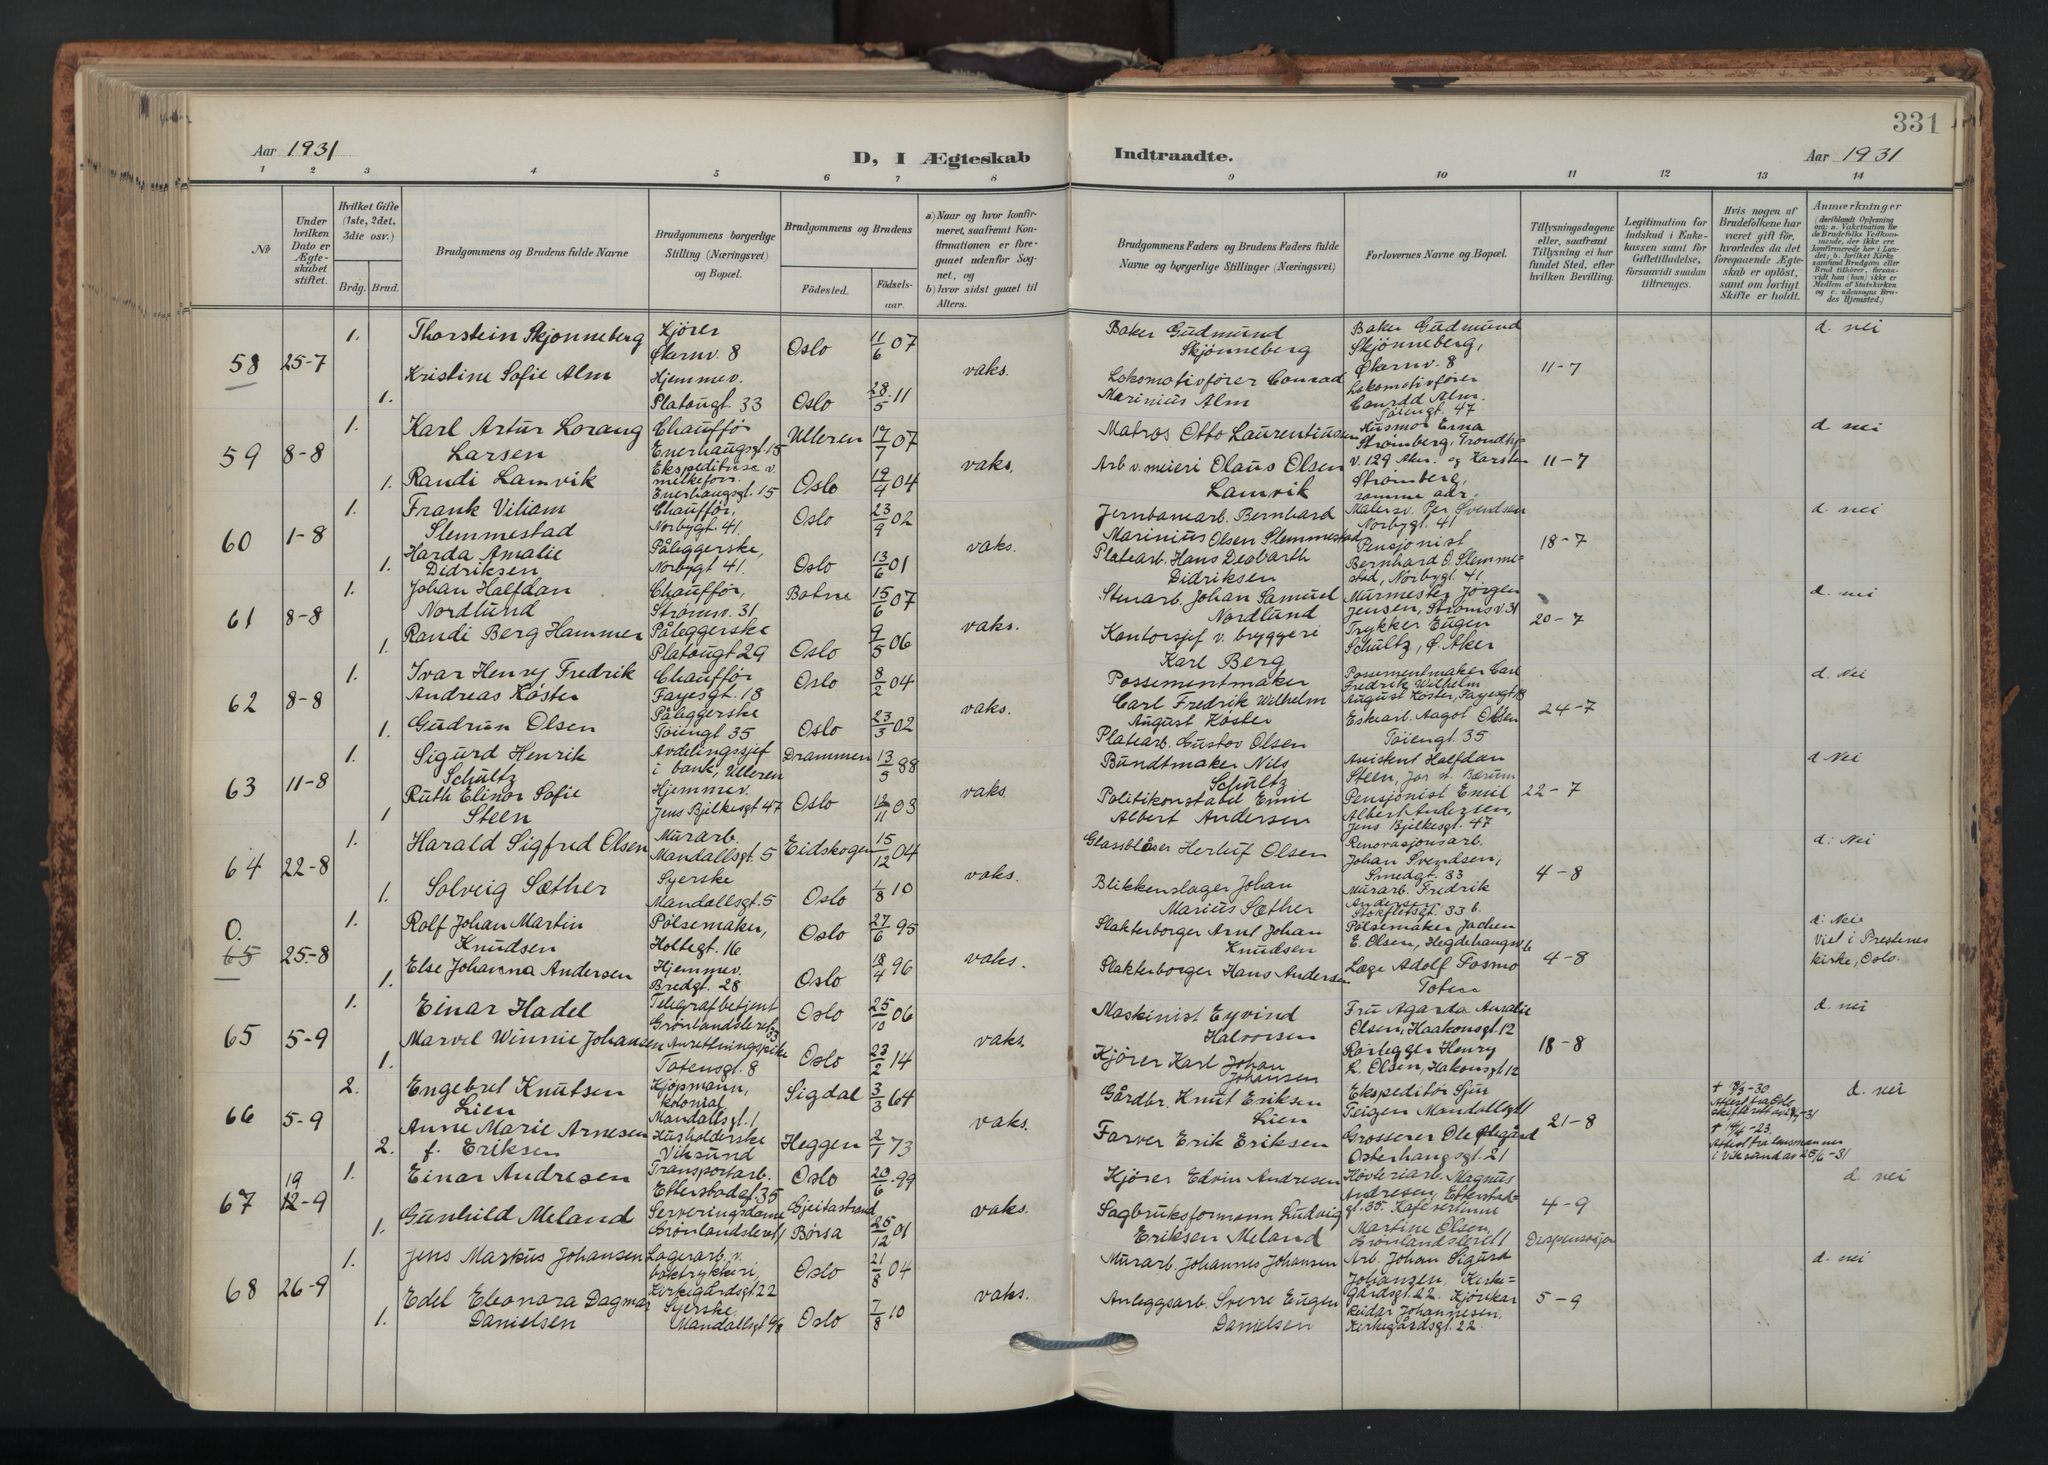 331
Aar 1931
D, I Ægteskab
Indtraadte.
Aar 1931
1 2 3 4 5 6 7 8 9 10 11 12 13 14
No
Under hvilken Dato er Ægteskabet stiftet.
Hvilket Gifte (1ste, 2det, 3die osv.)
Brdg. Brud.
Brudgommens og Brudens fulde Navne
Brudgommens borgerlige Stilling (Næringsvei) og Bopæl.
Brudgommens og Brudens
Fødested.
Fødselsaar.
a) Naar og hvor konfirmeret, saafremt Konfirmationen er foregaaet udenfor Sognet, og
b) hvor sidst gaaet til Alters.
Brudgommens Faders og Brudens Faders fulde Navne og borgerlige Stillinger (Næringsvei)
Forlovernes Navne og Bopæl.
Tillysningsdagene eller, saafremt Tillysning ei har fundet Sted, efter hvilken Bevilling.
Legitimation for Indskud i Enkekassen samt for Giftetilladelse, forsaavidt saadan tiltrænges.
Hvis nogen af Brudefolkene har været gift før, hvorledes da det foregaaende Ægteskab er opløst, samt om lovligt Skifte er holdt.
Anmærkninger
(deriblandt Oplysning om: a. Vakcination for de Brudefolks Vedkommende, der ikke ere konfirmerede her i Landet; b. hvilket Kirkesamfund Brudgom eller Brud tilhører, forsaavidt han (hun) ikke er Medlem af Statskirken og c. udensogns Brudes Hjemsted.)
58 25-7
1. Thorstein Skjønneberg Kjører Økernv. 8 Oslo 11/6 07
Baker Gudmund Skjønneberg
Baker Gudmund Skjønneberg, Økernv. 8
d. nei
1. Kristine Sofie Alm Hjemmev. Platougt. 33 Oslo 28/5 11
vaks.
Lokomotivfører Conrad Marinius Alm
Lokomotivfører Conrad Alm. Tøiengt. 47
11-7
59 8-8
1. Karl Artur Lorang Larsen Chauffør Enerhaugsgt. 15 Ulleren 17/7 07
Matros Otto Laurentiussen
Husmor Erna Strømberg, Trondhj. v. 129 Aker. og Karsten Strømberg, samme adr.
d. nei
1. Randi Lamvik Ekspeditrise v. melkeforr. Enerhaugsgt. 15 Oslo 19/4 04
vaks.
Arb. v. meieri Olaus Olsen Lamvik
11-7
60 1-8
1. Frank Viliam Slemmestad Chauffør, Norbygt. 41. Oslo 23/9 02
Jernbanearb. Bernhard Marinius Olsen Slemmestad
Malersv. Per Svendsen Norbygt. 41
d. nei
1. Harda Amalie Didriksen Påleggerske, Norbygt 41. Oslo 13/6 01
vaks.
Platearb. Hans Deobarth Didriksen
Pensjonist Bernhard O. Slemmestad, Norbygt. 41
18-7
61 8-8
1. Johan Halfdan Nordlund Chauffør, Strømsv. 31 Botne 15/6 07
Stenarb. Johan Samuel Nordlund
Murmester Jörgen Jensen, Strømsv. 31
d. nei
1. Randi Berg Hammer Påleggerske Platougt 29 Oslo 9/5 06
vaks.
Kontorsjef v. bryggeri Karl Berg
Trykker Eugen Schultz, Ø. Aker
20-7
62 8-8
1. Ivar Henry Fredrik Andreas Köster Chauffør Fayesgt. 18 Oslo 8/2 04
Possementmaker Carl Fredrik Wilhelm August Köster
Possementmaker Carl Fredrik Wilhelm August Köster, Fayesgt 18
d. Nei
1. Gudrun Olsen Påleggerske Tøiengt 35 Oslo 23/3 02
vaks.
Platearb. Gustov Olsen
Eskearb. Aagot Olsen Tøiengt. 35
24-7
63 11-8
1. Sigurd Henrik Schultz Avdelingssjef i bank, Ulleren Drammen 13/5 88
Bundtmaker Nils Schultz
Assistent Halfdan Steen, Jar st. Bærum
d Nei
1 Ruth Elinor Sofie Steen Hjemmev. Jens Bjelkesgt. 47 Oslo 12/11 03
vaks.
Politikonstabel Emil Albert Andersen
Pensjonist Emil Albert Andersen, Jens Bjelkesgt. 47
22-7
64 22-8
1. Harald Sigfred Olsen Murarb. Mandallsgt. 5 Eidskogen 15/12 04
Glassblåser Herluf Olsen
Renovasjonsarb. Johan Svendsen, Smedgt. 33
d: Nei
1. Solveig Sæther Syerske Mandallsgt. 5 Oslo 1/8 10
vaks.
Blikkenslager Johan Marius Sæther
Murarb. Fredrik Andersen Stokfletsgt. 33 b.
4-8
0. 65 25-8
1. Rolf Johan Martin Knudsen Pølsemaker, Holtegt. 16 Oslo 27/6 95
Slakterborger Arnt Johan Knudsen
Pølsemaker Jachen E. Olsen, Hegdehaugsv. 6
d: Nei
Viet i Prestenes kirke, Oslo.
1. Else Johanna Andersen Hjemmev. Bredgt. 28 Oslo 18/4 96
vaks.
Slakterborger Hans Andersen
Læge Adolf Fosmo Toten
4-8
65 5-9
1. Einar Hadel Telegrafbetjent Grønlandsleret 33 Oslo 25/10 06
Maskinist Eyvind Halvorsen
Fru Agarda Auralie Olsen, Haakonsgt. 12
d. nei
1. Marvel Winnie Johansen Anretningspike Totensgt. 8 Oslo 23/2 14
vaks.
Kjører Karl Johan Johansen
Rørlegger Henry L. Olsen, Hakonsgt. 12
18-8
66 5-9
2. Engebret Knutsen Lien Kjøpmann, kolonial Mandallsgt. 1 Sigdal 3/3 64
Gårdbr. Knut Eriksen Lien
Ekspeditør Sjur Teigen Mandallsgt 1
d. nei
2. Anne Marie Arnesen f. Eriksen Husholderske Viksund Heggen 2/1 73
vaks.
Farver Erik Eriksen
Grosserer Ole Ødegård Osterhausgt. 21
21-8
67 12-9 19
1. Einar Andresen Transportarb. Etterstadgt. 35 Oslo 20/6 99
Kjører Edvin Andresen
Magnus Andresen, Etterstadgt. 35. Kafévertinne Martine Olsen, Grønlandsleret 1
d. nei
1. Gunhild Meland Serveringsdame Grønlandsleret 1 Gjeitastrand Børsa 25/12 01
vaks.
Sagbruksformann Ludvig Eriksen Meland
4-9
Dispensasjon
68 26-9
1. Jens Markus Johansen Lagerarb. v. boktrykkeri, Kirkegårdsgt. 22 Oslo 21/8 04
Murarb. Johannes Johansen
Arb. Johan Sigurd Johansen, Kirkegårdsgt. 22. Kjørekar Reidar Johannesen, Kirkegårdsgt. 22.
d. nei
1. Edel Eleonora Dagmar Danielsen Syerske, Mandallsgt. 6/8 Oslo 7/8 10
vaks.
Anleggsarb. Sverre Eugen Danielsen
5-9